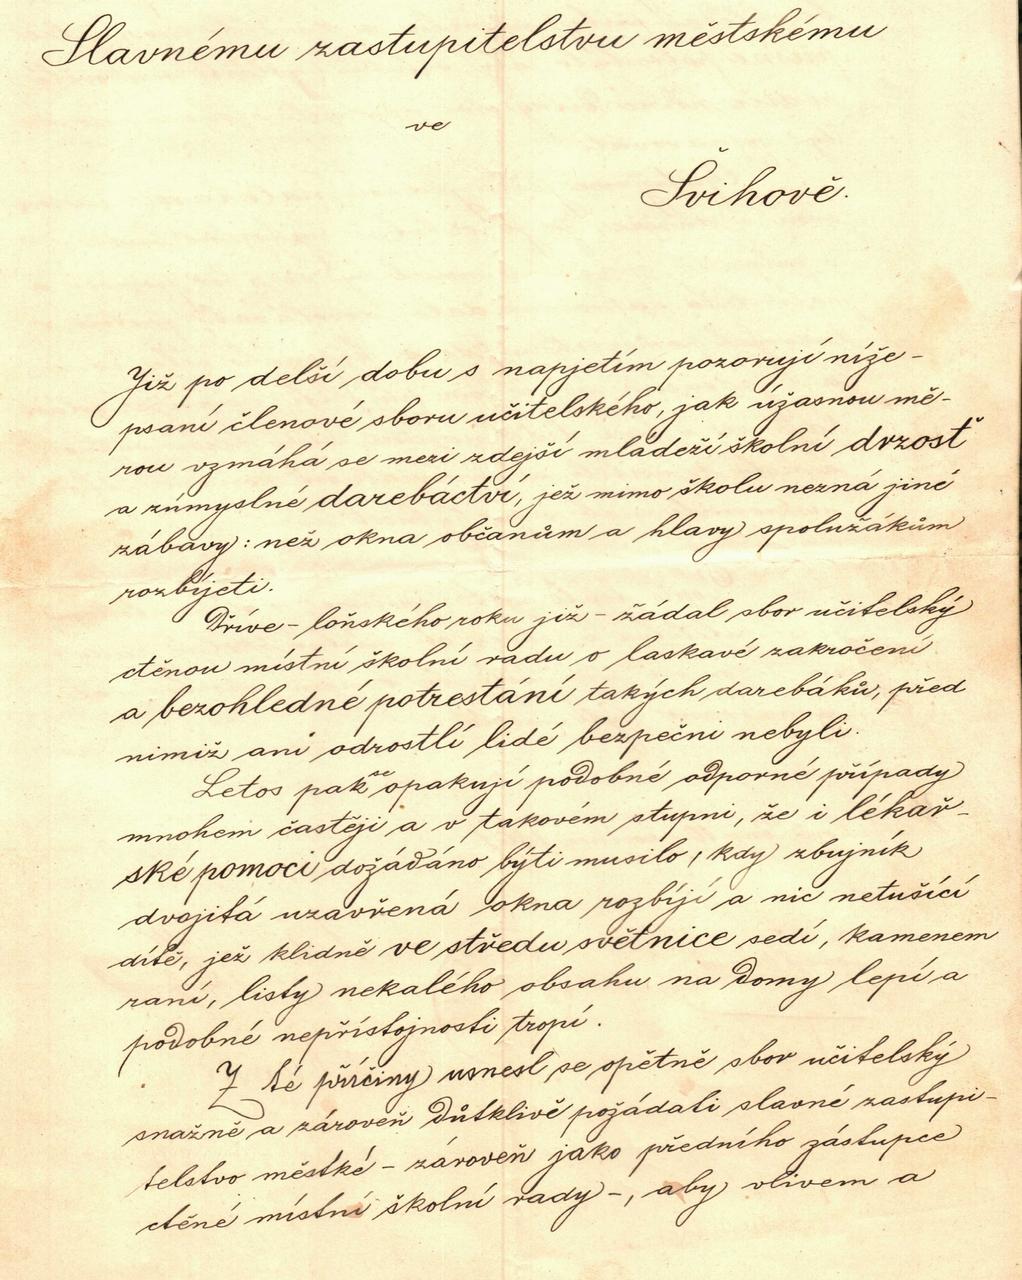 Slavnému zastupitelstvu městskému
ve
Švihově.
Již po delší dobu s napjetím pozorují níže-
psaní členové sboru učitelského, jak úžasnou mě-
rou vzmáhá se mezi zdejší mládeží školní drzosť
a zúmyslné darebáctví, jež mimo školu nezná jiné
zábavy: než okna občanům a hlavy spolužákům
rozbíjeti.
Dříve - loňského roku již - žádal sbor učitelský
ctěnou místní školní radu o laskavé zakročení
a bezohledné potrestání takých darebáků, před
nimiž ani odrostlí lidé bezpečni nebyli.
Letos pak se opakují podobné odporné případy
mnohem častěji a v takovém stupni, že i lékař-
ské pomoci dožádáno býti musilo, kdy zbujník
dvojitá uzavřená okna rozbíjí a nic netušící
dítě, jež klidně ve středu světnice sedí, kamenem
raní, listy nekalého obsahu na domy lepí a
podobné nepřístojnosti tropí.
Z té příčiny usnesl se opětně sbor učitelský
snažně a zároveň důtklivě požádati slavné zastupi-
telstvo městké - zároveň jako předního zástupce
ctěné místní školní rady -, aby vlivem a